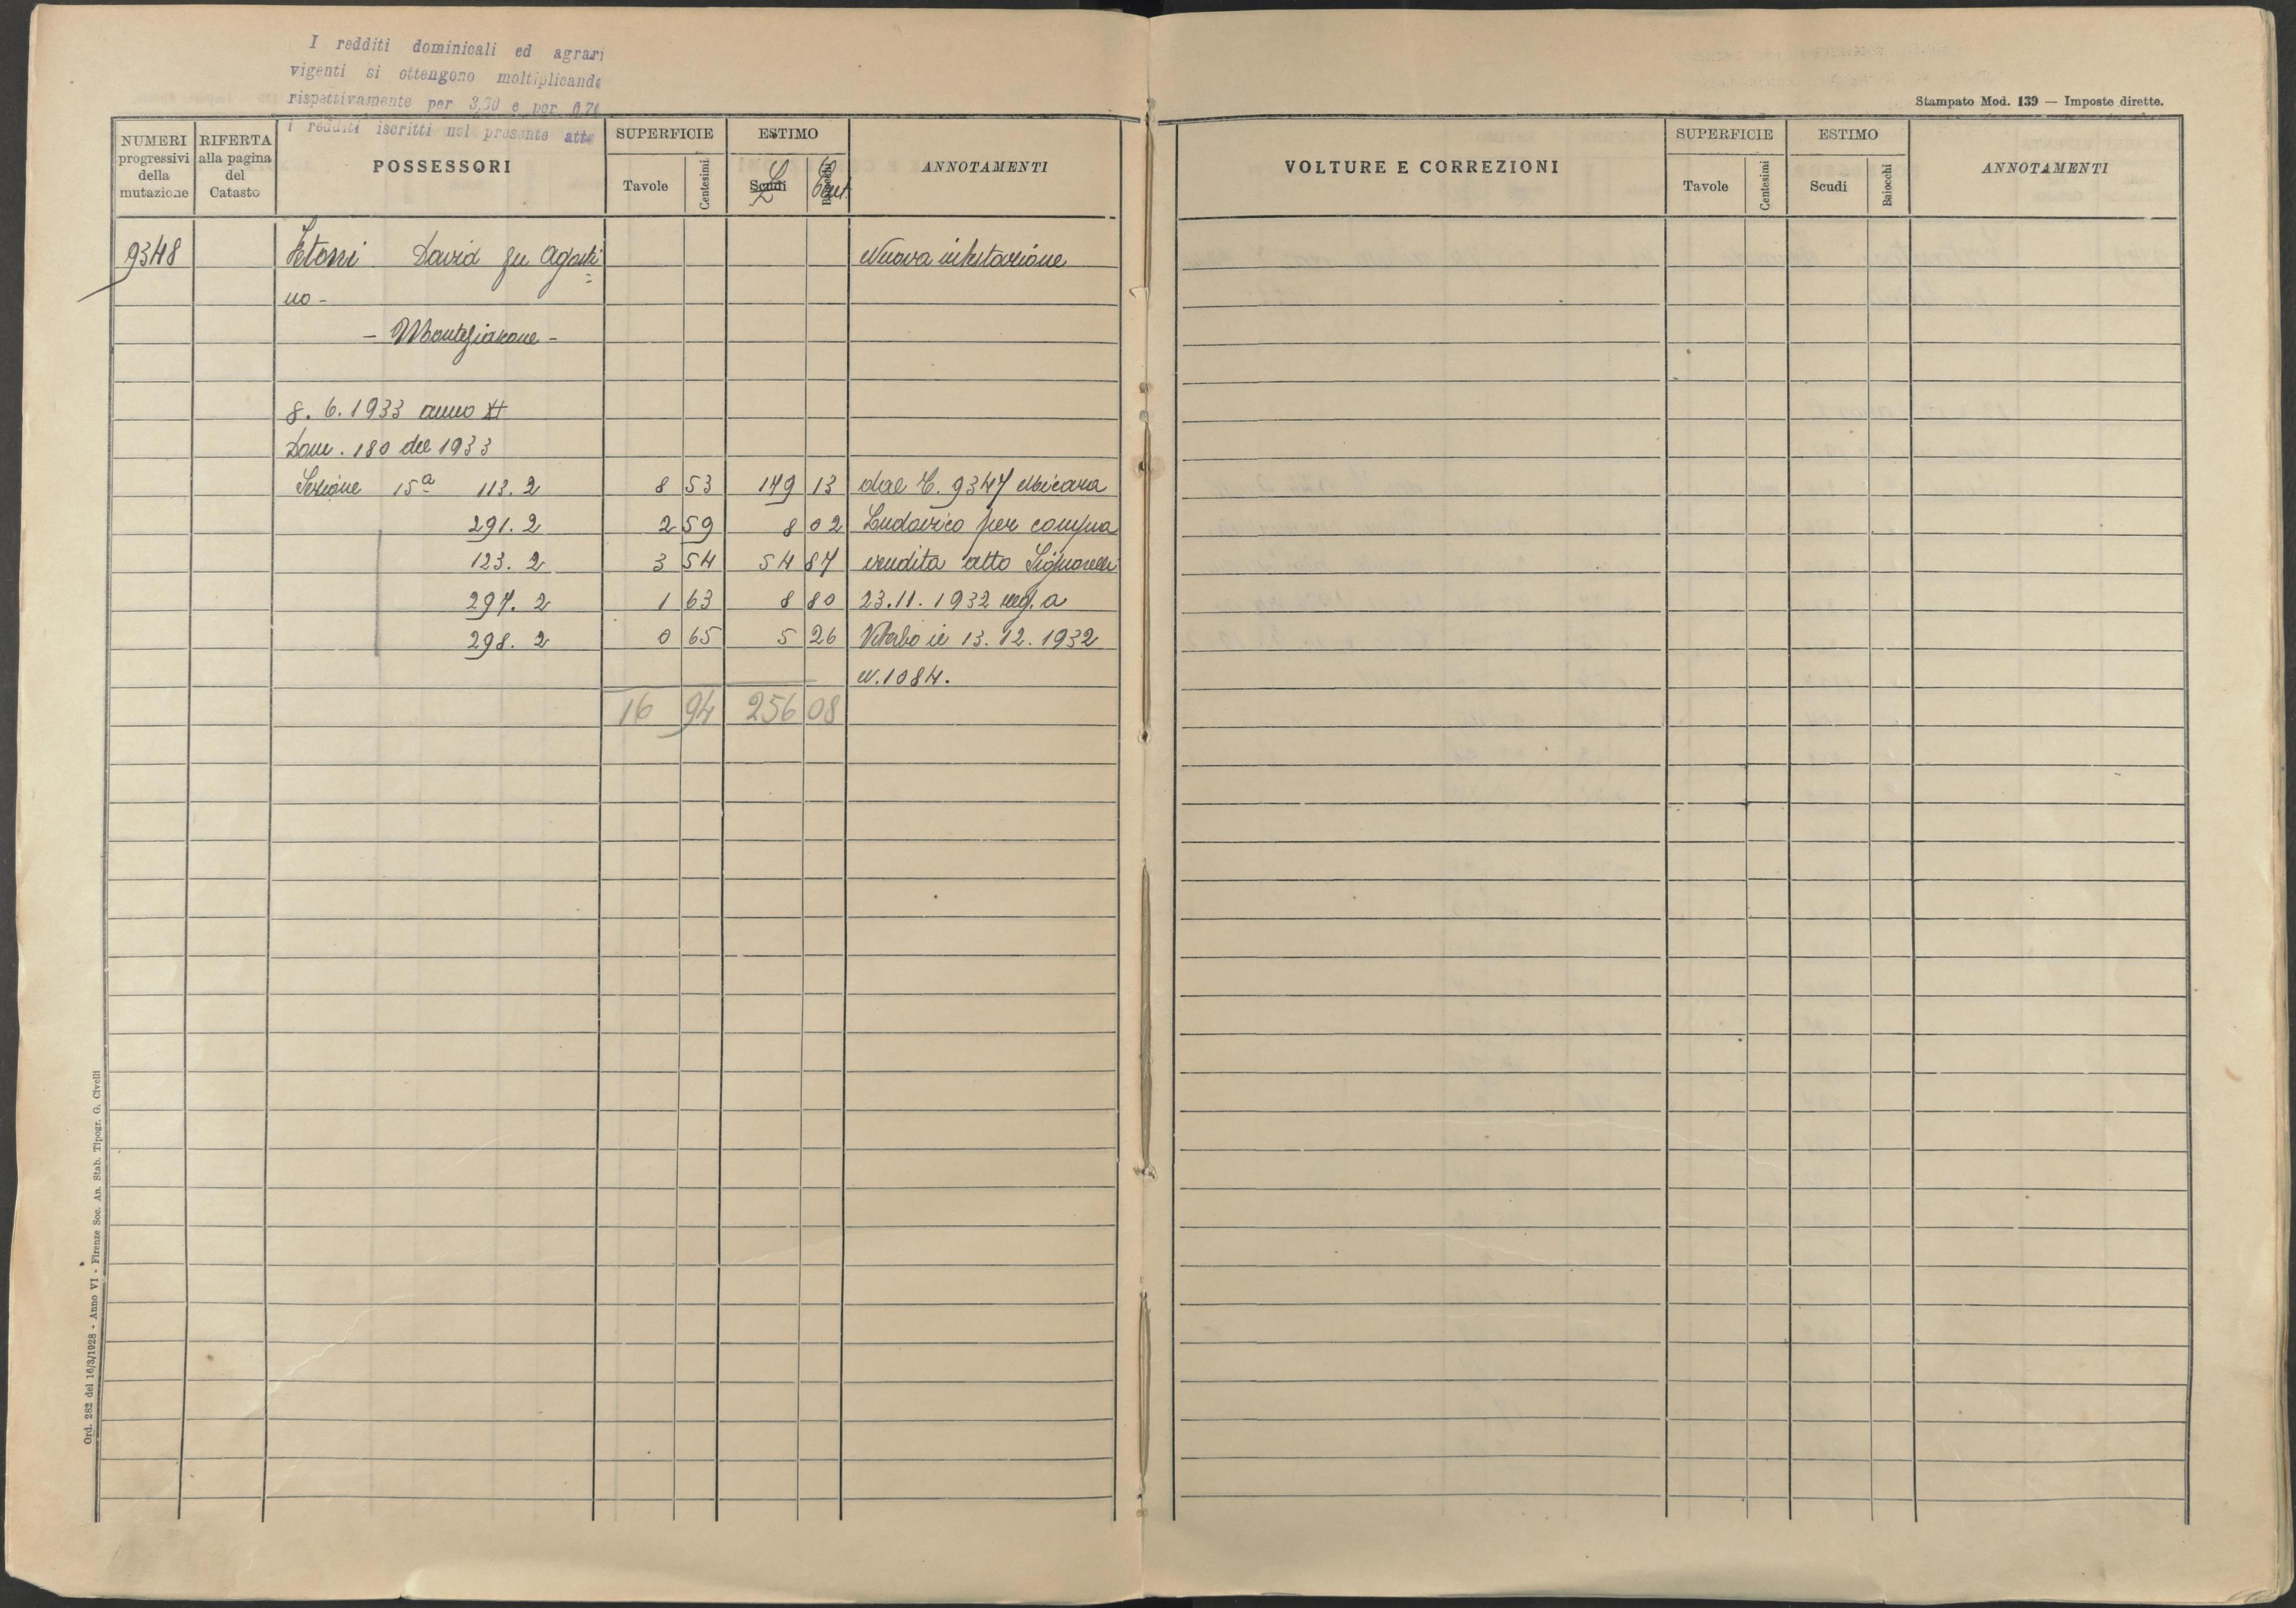 I redditi dominicali ed agrari
vigenti si ottengono moltiplicando
rispettivamente per 3,30 e per 0,74
i redditi iscritti nel presente atto
Stampato Mod. 139 — Imposte dirette.
NUMERI progressivi della mutazione
RIFERTA alla pagina del Catasto
POSSESSORI
SUPERFICIE
Tavole
Centesimi
ESTIMO
Scudi
L
Baiocchi
Cent.
ANNOTAMENTI
VOLTURE E CORREZIONI
SUPERFICIE
Tavole
Centesimi
ESTIMO
Scudi
Baiocchi
ANNOTAMENTI
9348 David fu Agosti= Nuova intestazione
no -
- Montefiascone -
8. 6. 1933 anno XI
Dom. 180 del 1933
Sezione 15ª 113. 2 8 53 179 13 dal C. 9347
291. 2 2 59 8 02 Ludovico per compra
123. 2 3 54 54 87 vendita atto Signorelli
297. 2 1 63 8 80 23.11.1932 reg. a
298. 2 0 65 5 26 Viterbo il 13.12.1932
N. 1084.
16 94 256 08
Ord. 282 del 16/3/1928 - Anno VI - Firenze Soc. An. Stab. Tipogr. G. Civelli